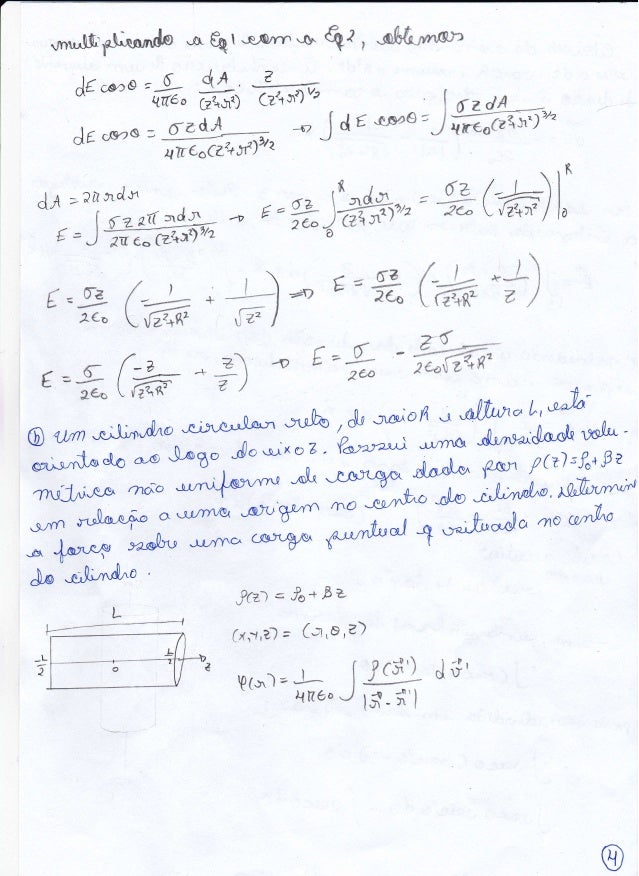 multiplicando a Eq1 com a Eq2, obtemos
dE cosθ = σ/4πε₀ dA/(z²+r²) z/(z²+r²)^1/2
dE cosθ = σzdA/4πε₀(z²+r²)^3/2 → ∫dE cosθ = ∫σzdA/4πε₀(z²+r²)^3/2
dA = 2πrdr
E = ∫σz2πrdr/2πε₀(z²+r²)^3/2 → E = σz/2ε₀ ∫₀^R rdr/(z²+r²)^3/2 = σz/2ε₀ (-1/√z²+r²)|₀^R
E = σz/2ε₀ (-1/√z²+R² + 1/√z²) ⇒ E = σz/2ε₀ (-1/√z²+R² + 1/z)
E = σ/2ε₀ (-z/√z²+R² + z/z) → E = σ/2ε₀ - zσ/2ε₀√z²+R²
b) Um cilindro circular reto, de raio R e altura L, está
orientado ao logo do eixo z. Possui uma densidade volu-
métrica não uniforme de carga dada por ρ(z)=ρ₀+βz
em relação a uma origem no centro do cilindro. Determin
a força sobre uma carga puntual q situada no centro
do cilindro.
ρ(z) = ρ₀ + βz
L
(x,y,z) = (r,θ,z)
-L/2 0 L/2 z
φ(r) = 1/4πε₀ ∫ρ(r⃗')/|r⃗-r⃗'| dv'
4